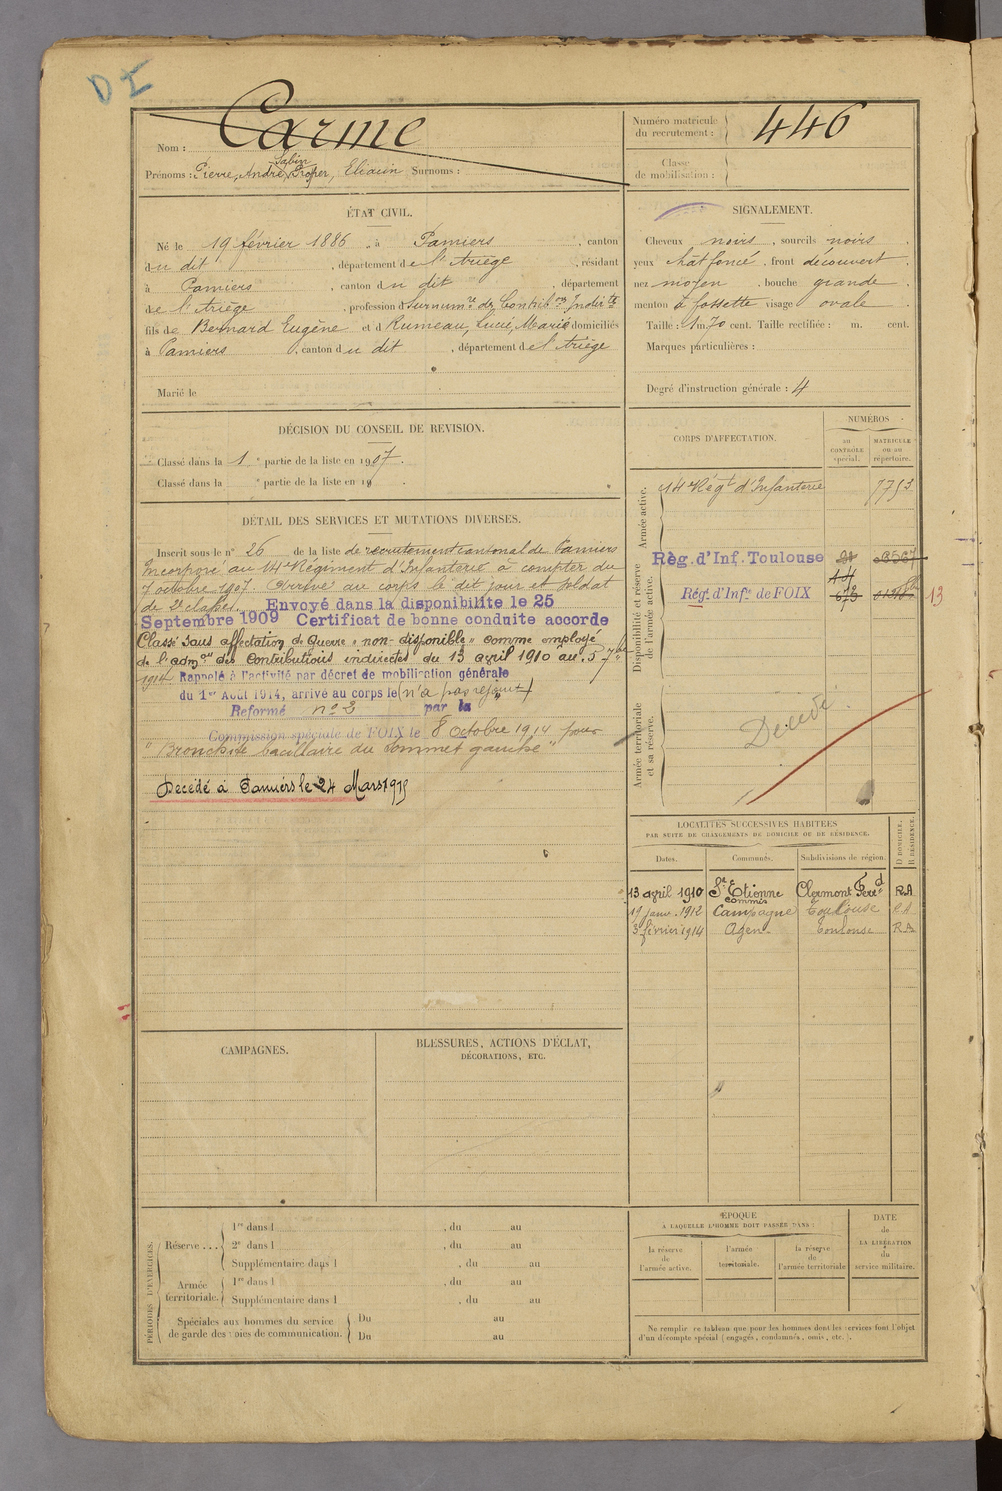 D I
Nom : Carme
Sabin
Prénoms : Pierre, André, Prosper, Eliacin Surnoms :
Numéro matricule
du recrutement : 446
Classe
de mobilisation :
ÉTAT CIVIL.
Né le 19 février 1886, à Pamiers, canton
du dit, département de l'Ariège, résidant
à Pamiers, canton du dit, département
de l'Ariège, profession d
fils de Bernard Eugène et d Rumeau, Lucie, Marie domiciliés
à Pamiers, canton du dit, département de l'Ariège
Marié le
SIGNALEMENT.
Cheveux noirs, sourcils noirs
yeux chat foncé, front découvert
nez moyen, bouche grande
menton à fossette visage ovale
Taille : 1 m. 70 cent. Taille rectifiée : m. cent.
Marques particulières :
Degré d'instruction générale : 4
DÉCISION DU CONSEIL DE REVISION.
Classé dans la 1e partie de la liste en 1907.
Classé dans la e partie de la liste en 19
DÉTAIL DES SERVICES ET MUTATIONS DIVERSES.
Inscrit sous le n° 26 de la liste de recrutement cantonal de Pamiers
Incorporé au 14e Régiment d'Infanterie à compter du
7 octobre 1907. Arrivé au corps le dit jour et soldat
de 2e classe. Envoyé dans la disponibilité le 25
Septembre 1909 Certificat de bonne conduite accordé
Classé sans affectation de Guerre "non-disponible" comme employé
de l'admon des Contributions indirectes du 13 avril 1910 au 5 7bre
1914. Rappelé à l'activité par décret de mobilisation générale
du 1er Août 1914, arrivé au corps le (n'a pas rejoint)
Réformé n° 2 par la
Commission spéciale de FOIX le 8 octobre 1914 pour
"Bronchite bacillaire du sommet gauche"
Décédé à Pamiers le 24 Mars 1915
CORPS D'AFFECTATION.
NUMÉROS
AU CONTRÔLE spécial.
MATRICULE ou au répertoire.
Armée active.
14e Régt d'Infanterie 7753
Disponibilité et réserve
de l'armée active.
Règ. d'Inf. Toulouse
Régt. d'Infie de FOIX
13
Armée territoriale
et sa réserve.
Décédé
LOCALITÉS SUCCESSIVES HABITÉES
PAR SUITE DE CHANGEMENTS DE DOMICILE OU DE RÉSIDENCE.
Dates. Communes. Subdivisions de région. D DOMICILE. R RÉSIDENCE.
13 avril 1910 St Etienne Clermont Ferrd R.A
commis
19 janv. 1912 Campagne Toulouse R.A
3 février 1914 Agen Toulouse R.A
CAMPAGNES.
BLESSURES, ACTIONS D'ÉCLAT,
DÉCORATIONS, ETC.
PÉRIODES D'EXERCICES.
Réserve . . .
1re dans l , du au
2e dans l , du au
Supplémentaire dans l , du au
Armée
territoriale.
1re dans l , du au
Supplémentaire dans l , du au
Spéciales aux hommes du service
de garde des voies de communication.
Du au
Du au
ÉPOQUE
À LAQUELLE L'HOMME DOIT PASSER DANS :
la réserve
de
l'armée active.
l'armée
territoriale.
la réserve
de
l'armée territoriale
DATE
de
LA LIBÉRATION
du
service militaire.
Ne remplir ce tableau que pour les hommes dont les services font l'objet
d'un décompte spécial (engagés, condamnés, omis, etc.).